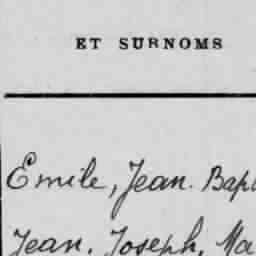 ET SURNOMS
Emile, Jean. Bap
Jean. Joseph, Ma